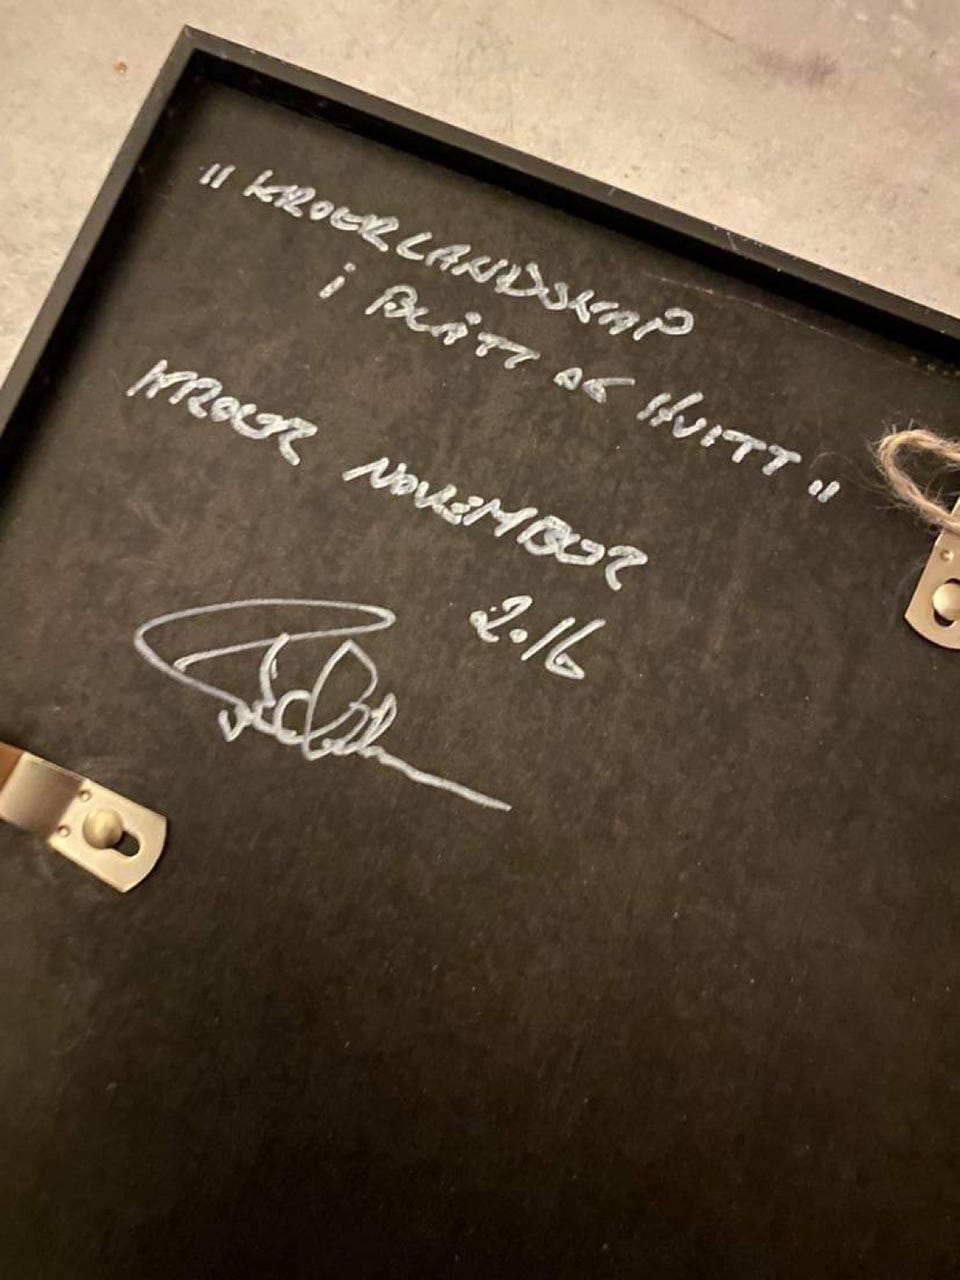 "KROERLANDSKAP
i BLÅTT OG HVITT"
KROER NOVEMBER
2016